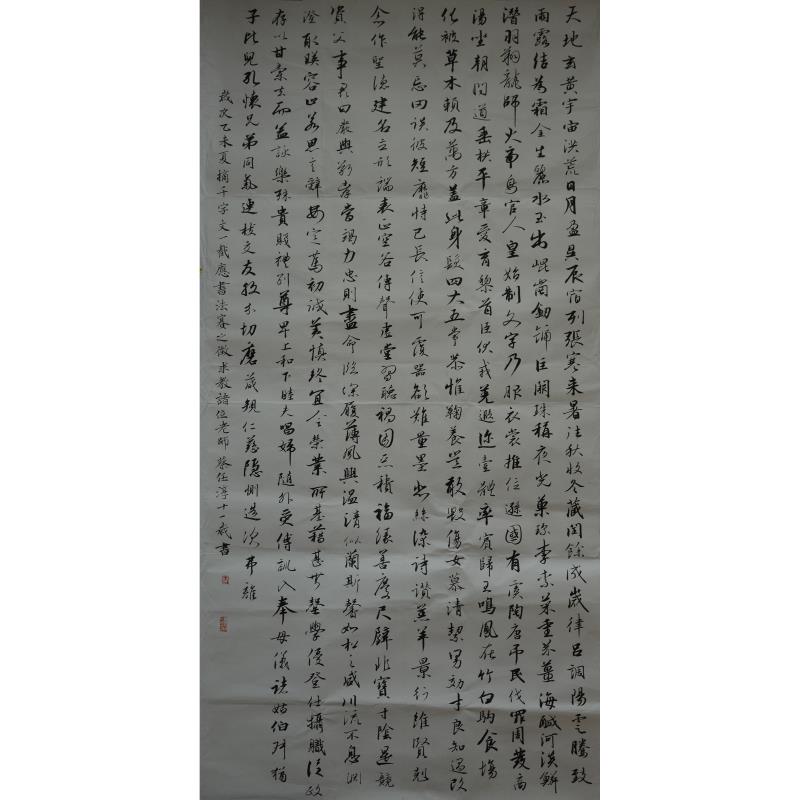 天地玄黃宇宙洪荒日月盈昃辰宿列張寒来暑往秋收冬藏閏餘成歲律呂調陽雲騰致
雨露結為霜金生麗水玉出崐崗劍號巨闕珠稱夜光菓珍李柰菜重芥薑海鹹河淡鱗
潛羽翔龍師火帝鳥官人皇始制文字乃服衣裳推位遜國有虞陶唐吊民伐罪周發商
湯坐朝問道垂拱平章愛育黎首臣伏戎羌遐迩壹體率賓歸王鳴鳳在竹白駒食場
化被草木賴及萬方蓋此身髮四大五常恭惟鞠養豈敢毀傷女慕清絜男効才良知過改
得能莫忘罔談彼短靡恃己長信使可覆器欲難量墨悲絲染詩讚羔羊景行維賢剋
念作聖德建名立形端表正空谷傳聲虛堂習聽禍因惡積福緣善慶尺璧非寶寸陰是競
資父事君曰嚴與敬孝當竭力忠則盡命臨深履薄夙興温凊似蘭斯馨如松之盛川流不息淵
澄取暎容止若思言辭安定篤初誠美慎終宜令榮業所基藉甚無竟學優登仕攝職從政
存以甘棠去而益詠樂殊貴賤禮別尊卑上和下睦夫唱婦隨外受傅訓入奉母儀諸姑伯叔猶
子比兒孔懷兄弟同氣連枝交友投分切磨箴規仁慈隱惻造次弗離
歲次乙未夏摘千字文一截應書法賽之徵求教諸位老師 蔡任淳十一歲書